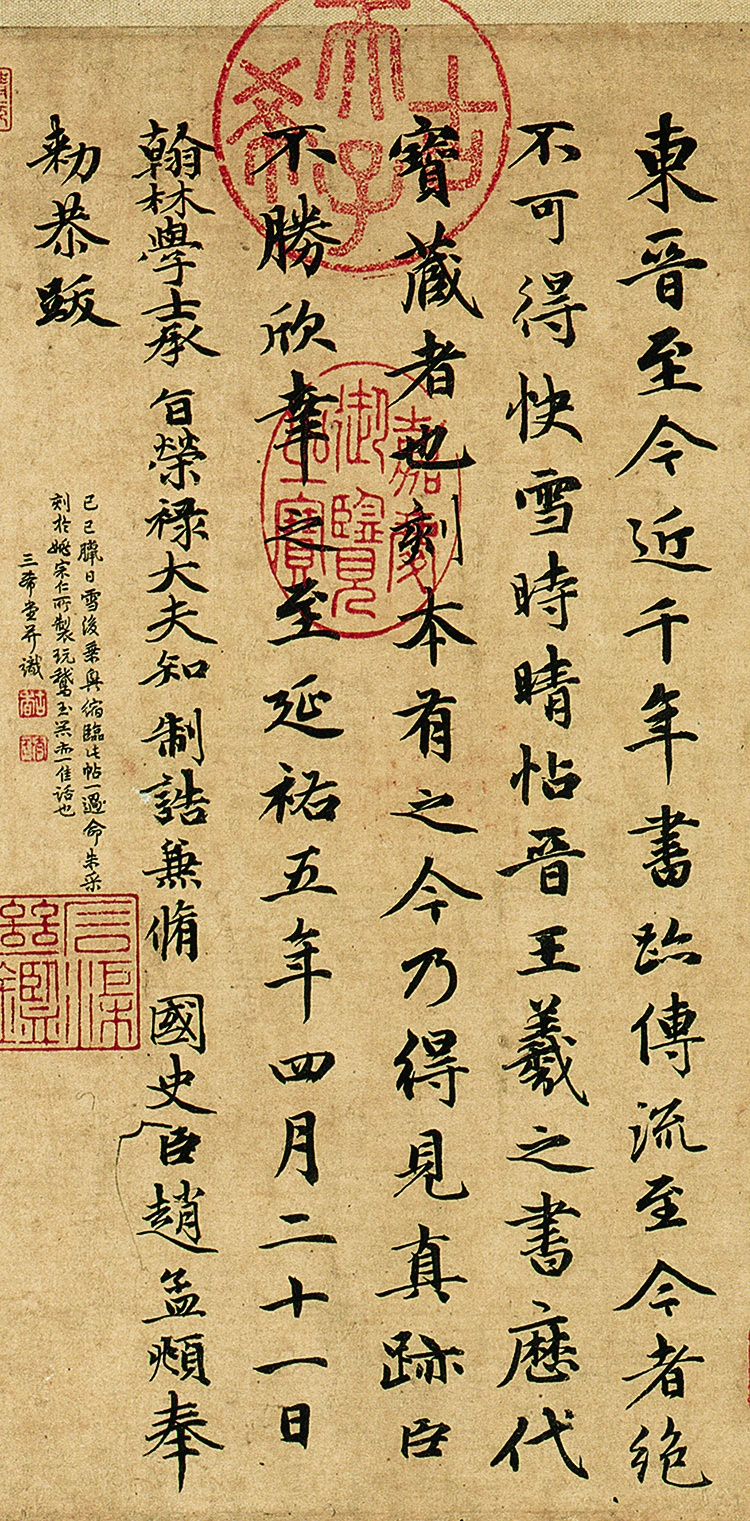 東晉至今近千年書跡傳流至今者絶
不可得快雪時晴帖晉王羲之書歷代
寶藏者也刻本有之今乃得見真跡臣
不勝欣幸之至延祐五年四月二十一日
翰林學士承旨榮祿大夫知制誥兼脩國史臣趙孟頫奉
勑恭跋
己巳臘日雪後乗興縮臨此帖一過命朱采
刻於姚宗仁所製玩鵞玉器亦一佳話也
三希堂并識
古希天子
嘉慶御覽之寶